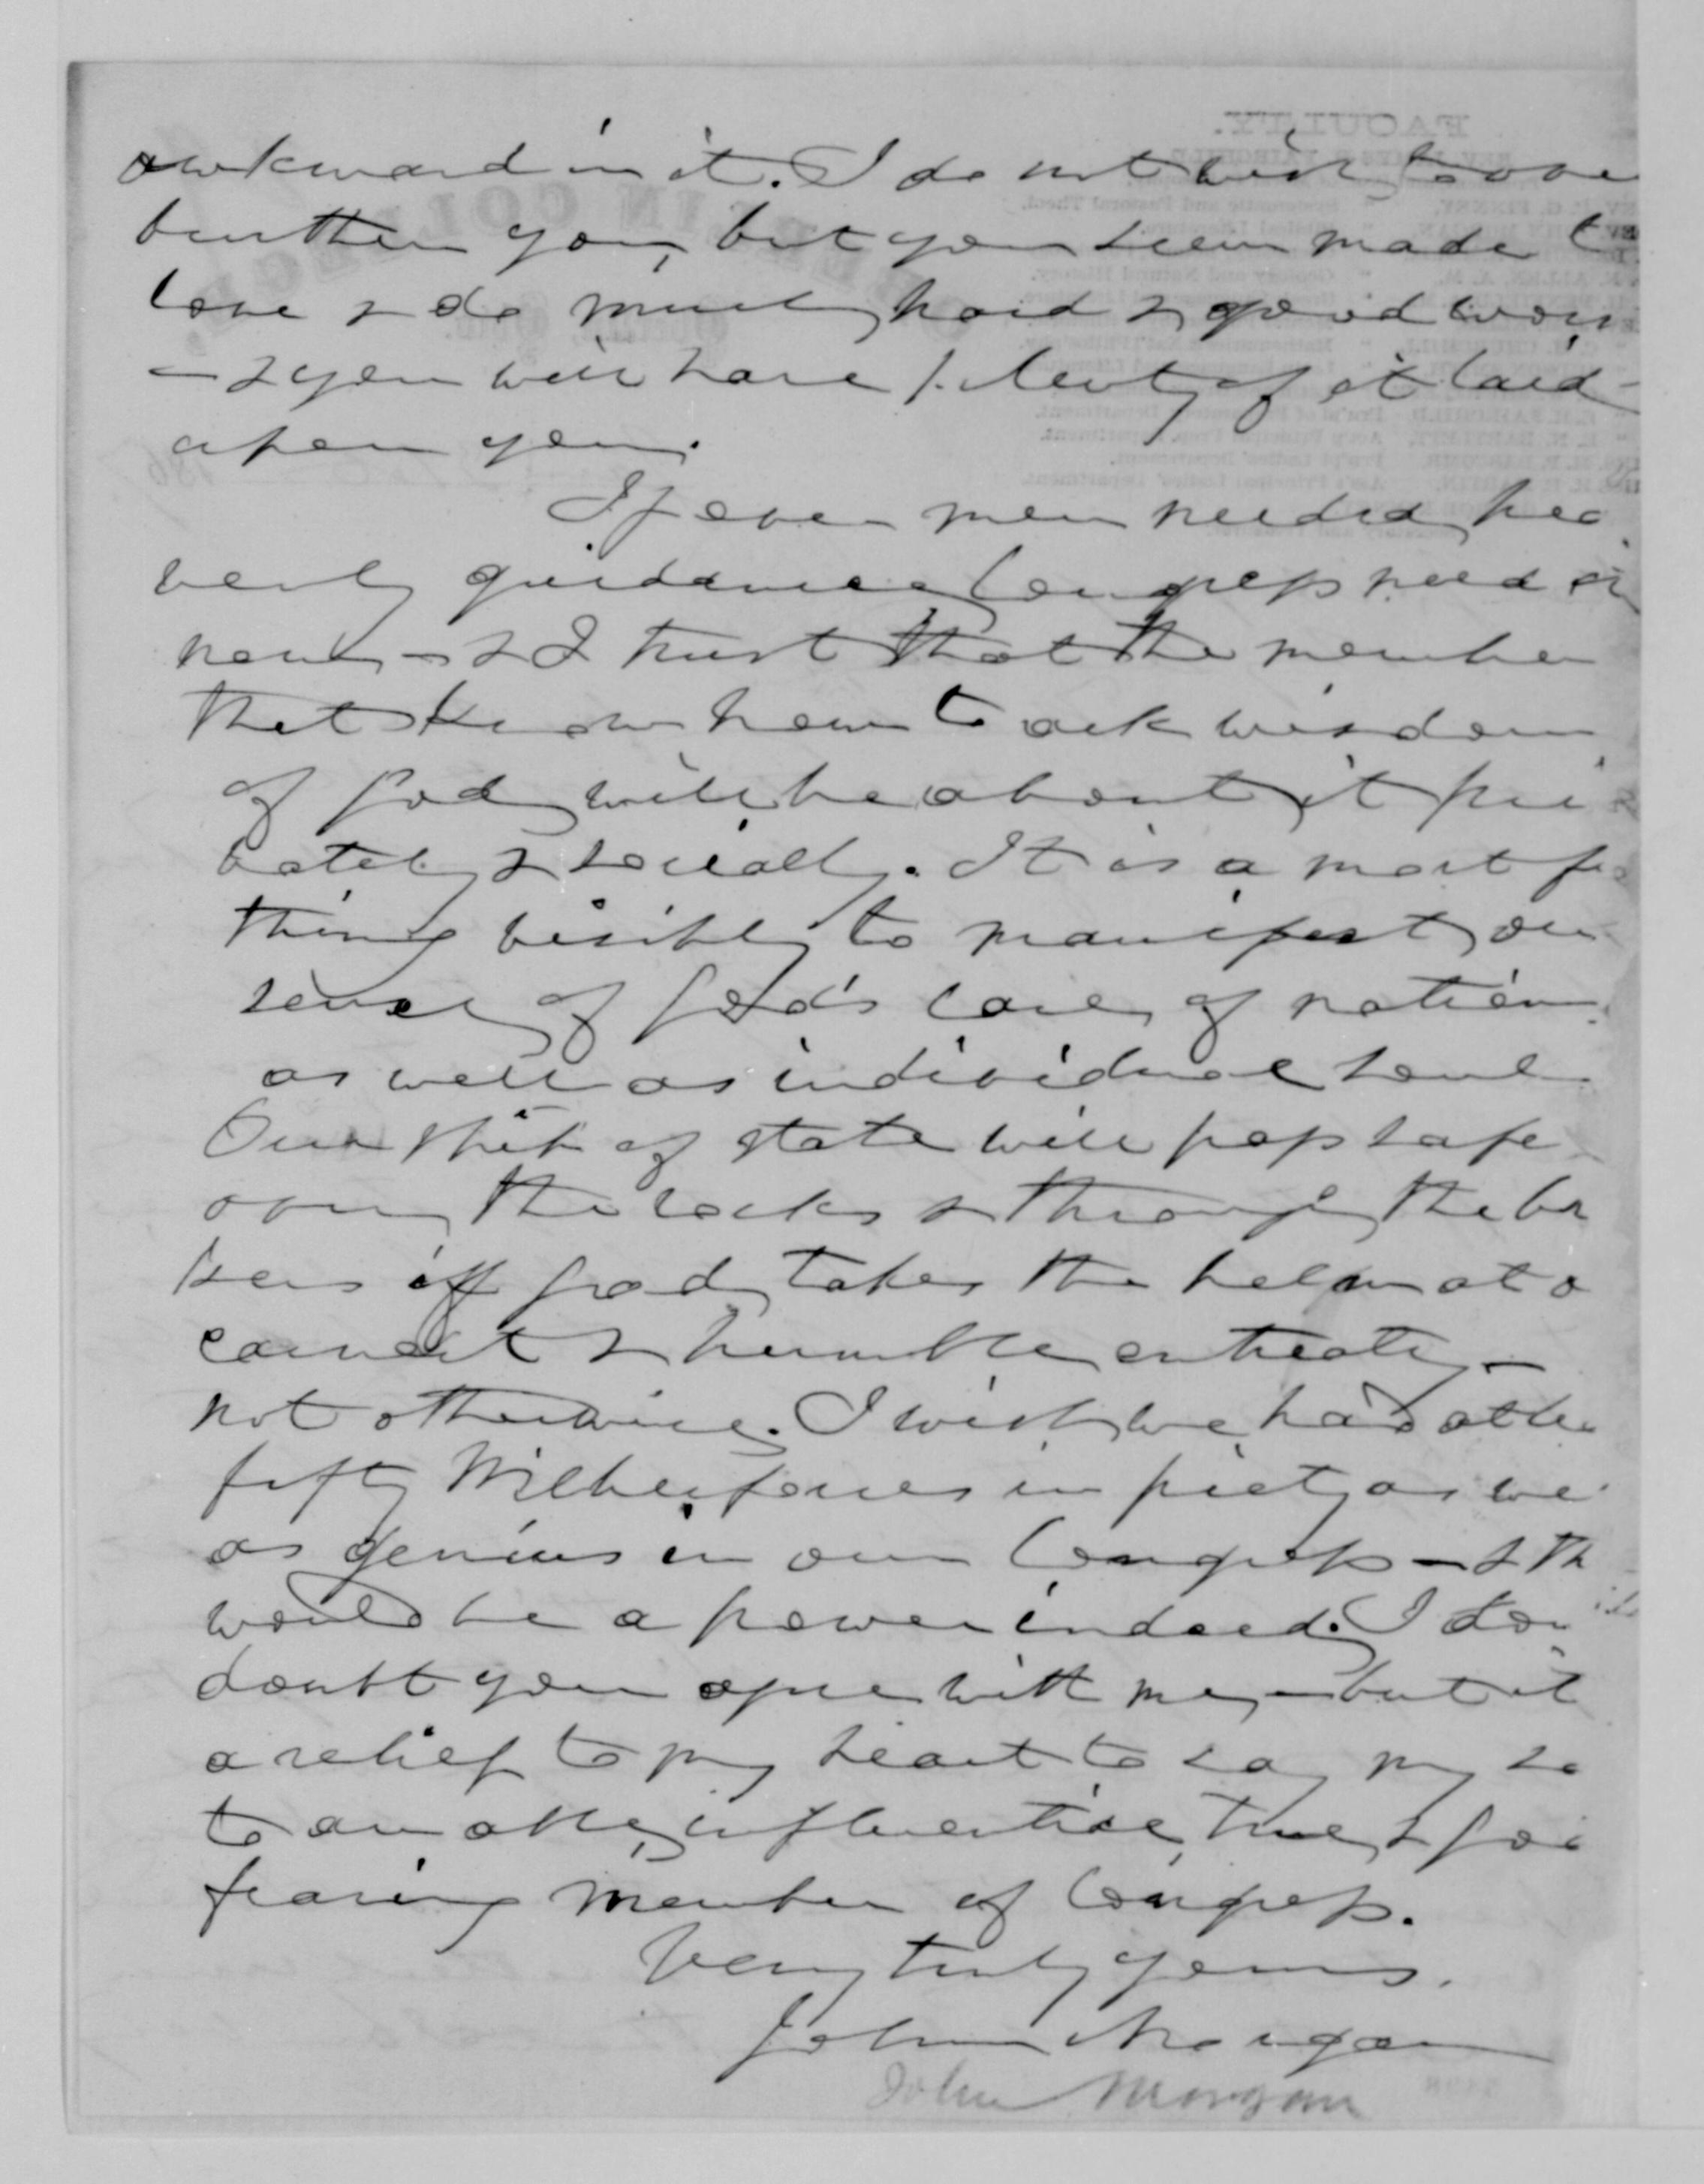 awkward in it. I do not wish to over
burthen you, but you seem made to
love & do much hard & good work
— & you will have plenty of it laid
upon you.
If ever men needed hea
venly guidance Congress need it
now — & I trust that the member
that know how to ask wisdom
of God will be about it pri
vately & socially. It is a most
thing visibly to manifest our
sense of God's care of nation
as well as individual soul
Our ship of state will pass safe
over the rocks & through the br
kers if God takes the helm at o
earnest & humble entreaty —
not otherwise. I wish we had othe
fifty Wilberforces in piety as we
as genius in our Congress — & th
would be a power indeed. I don
doubt you agree with me, — but it
a relief to my heart to say my sa
to an able, influential, true & God
fearing member of Congress.
Very truly yours.
John Morgan
John Morgan
FACULTY.